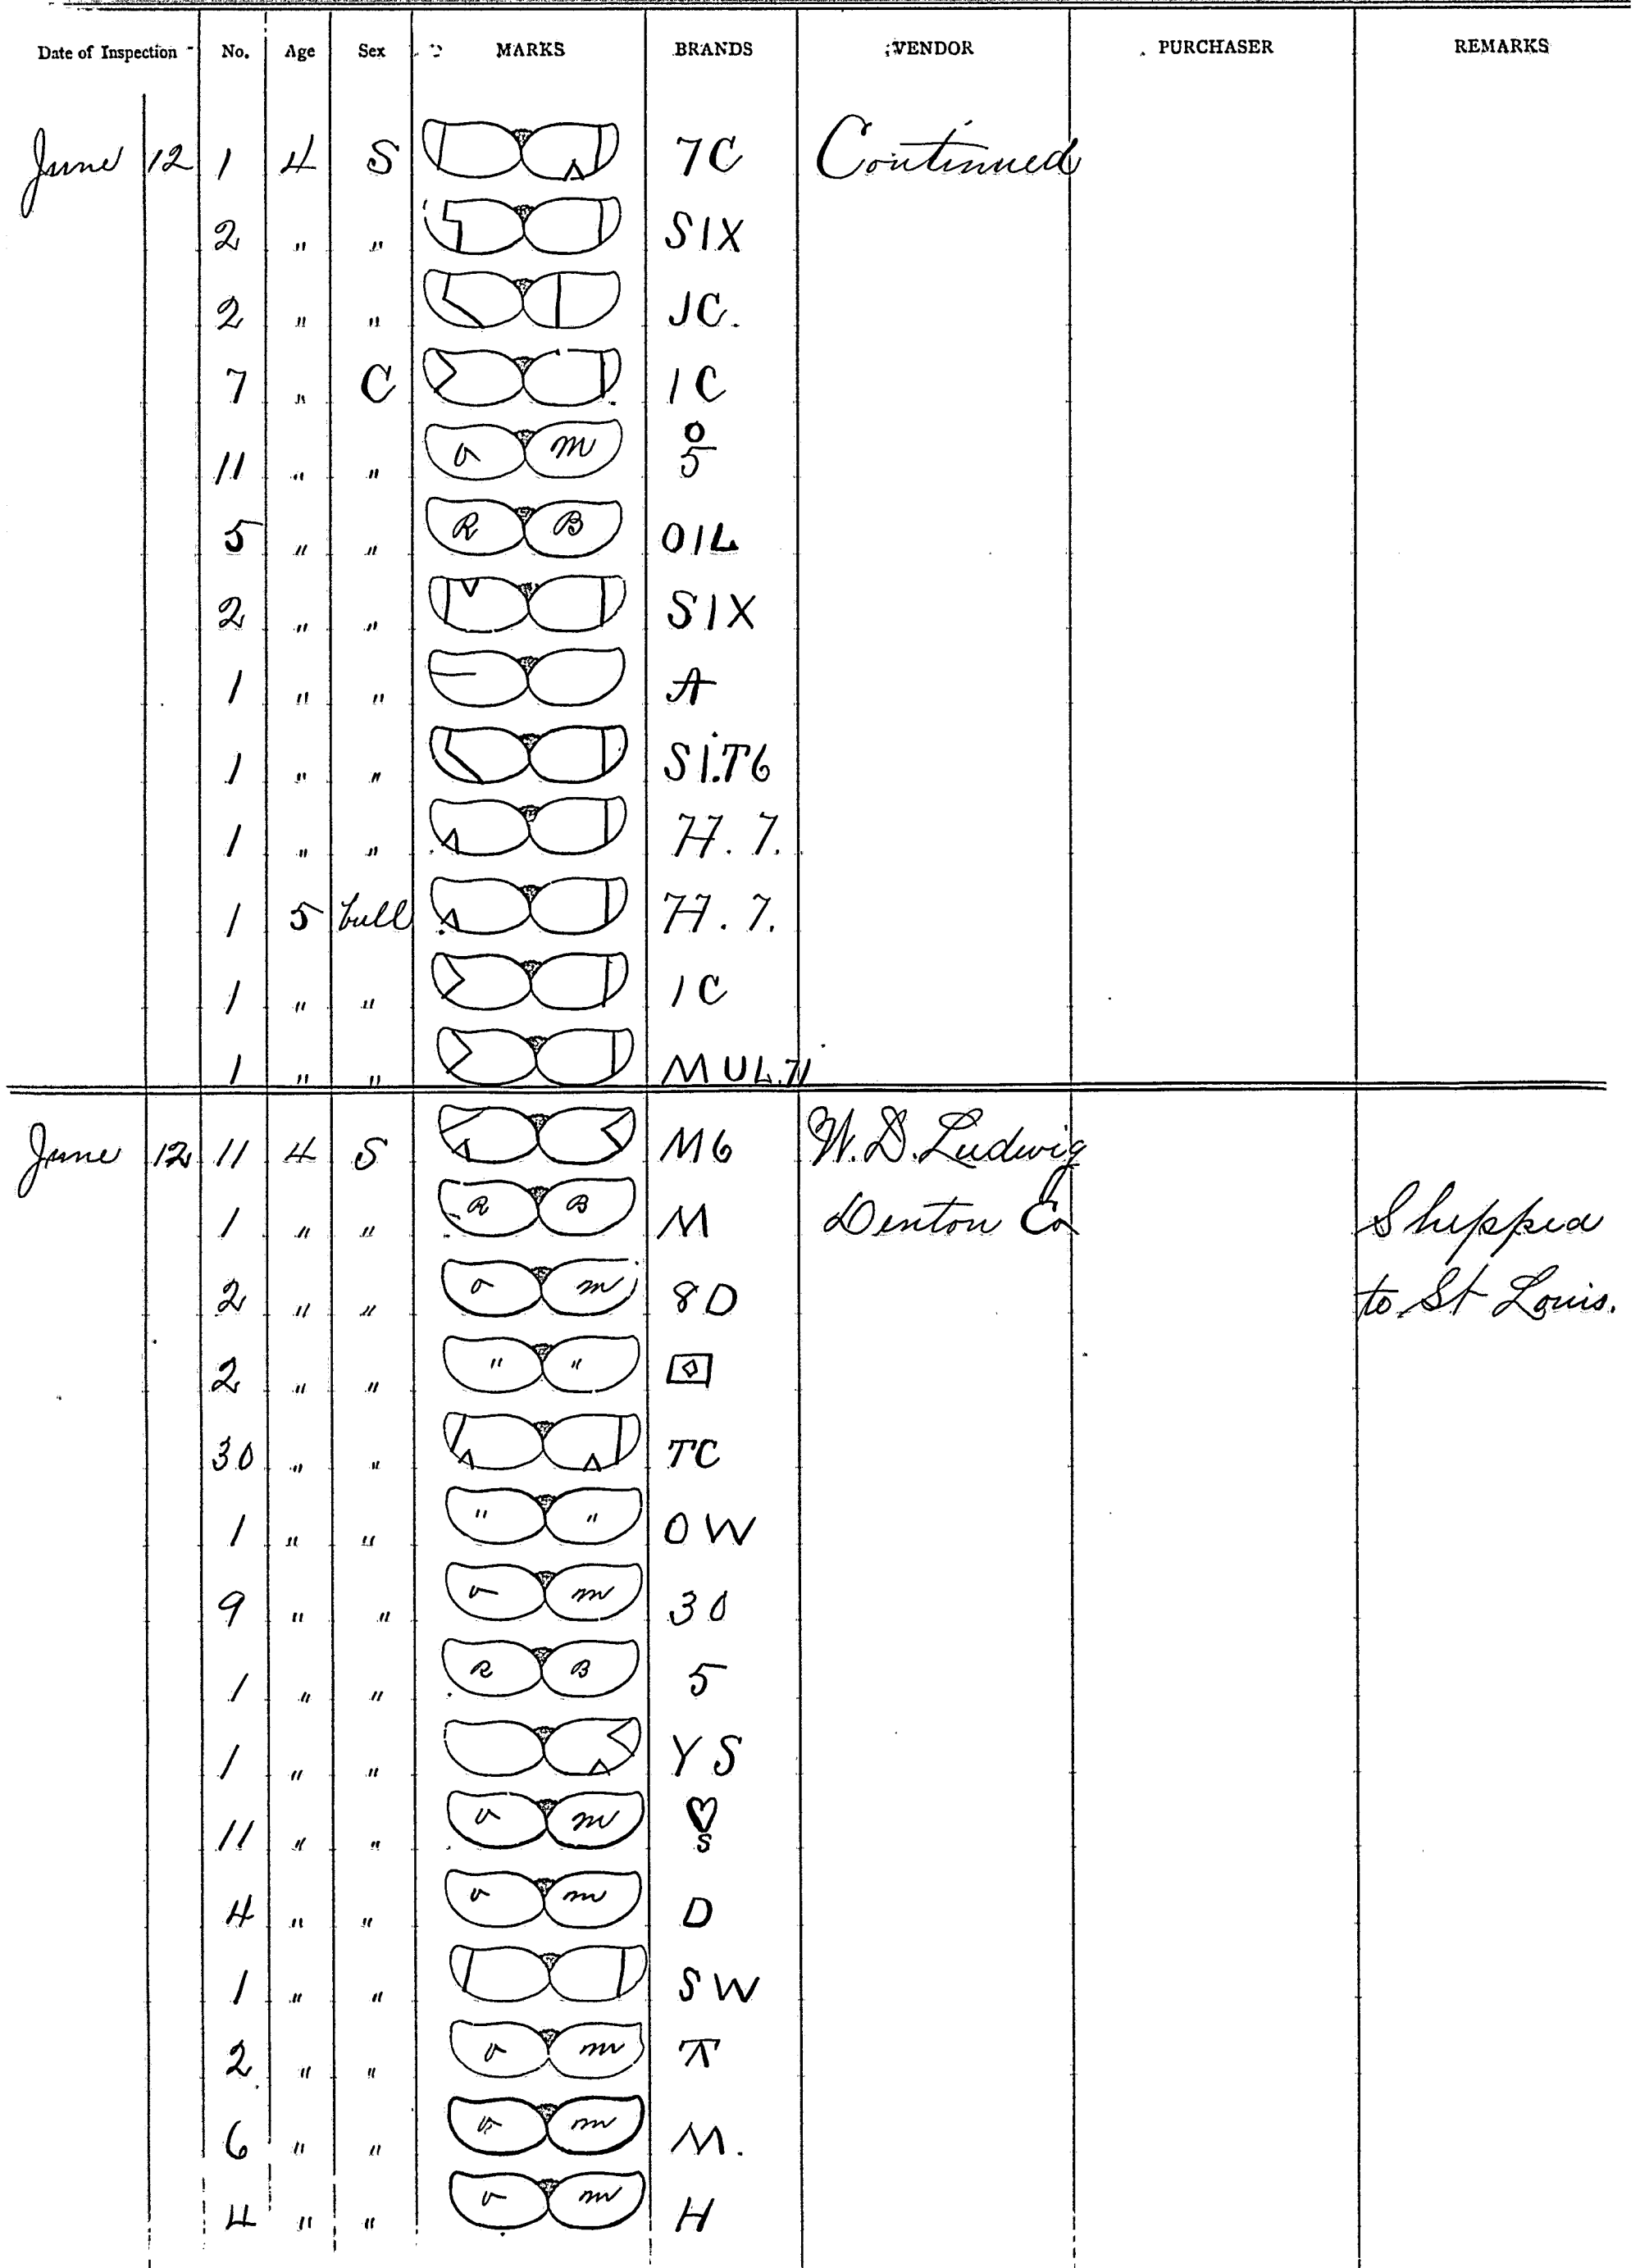 Date of Inspection No. Age Sex MARKS BRANDS VENDOR PURCHASER REMARKS
June 12 1 4 S 7C Continued
2 " " SIX
2 " " JC.
7 " C 1C
11 " " v m O
5
5 " " R B OIL
2 " " SIX
1 " " A
1 " " S1.T6
1 " " H.7.
1 5 bull H.7.
1 " " 1C
1 " " MUL.71
June 12 11 4 S M6 W. D. Ludwig
1 " " R B M Denton Co Shipped
2 " " o m 8D to St Louis.
2 " " " "
30 " " TC
1 " " " " OW
9 " " v m 30
1 " " R B 5
1 " " YS
11 " " v m ♡
S
4 " " v m D
1 " " SW
2 " " v m T
6 " " v m M.
4 " " v m H